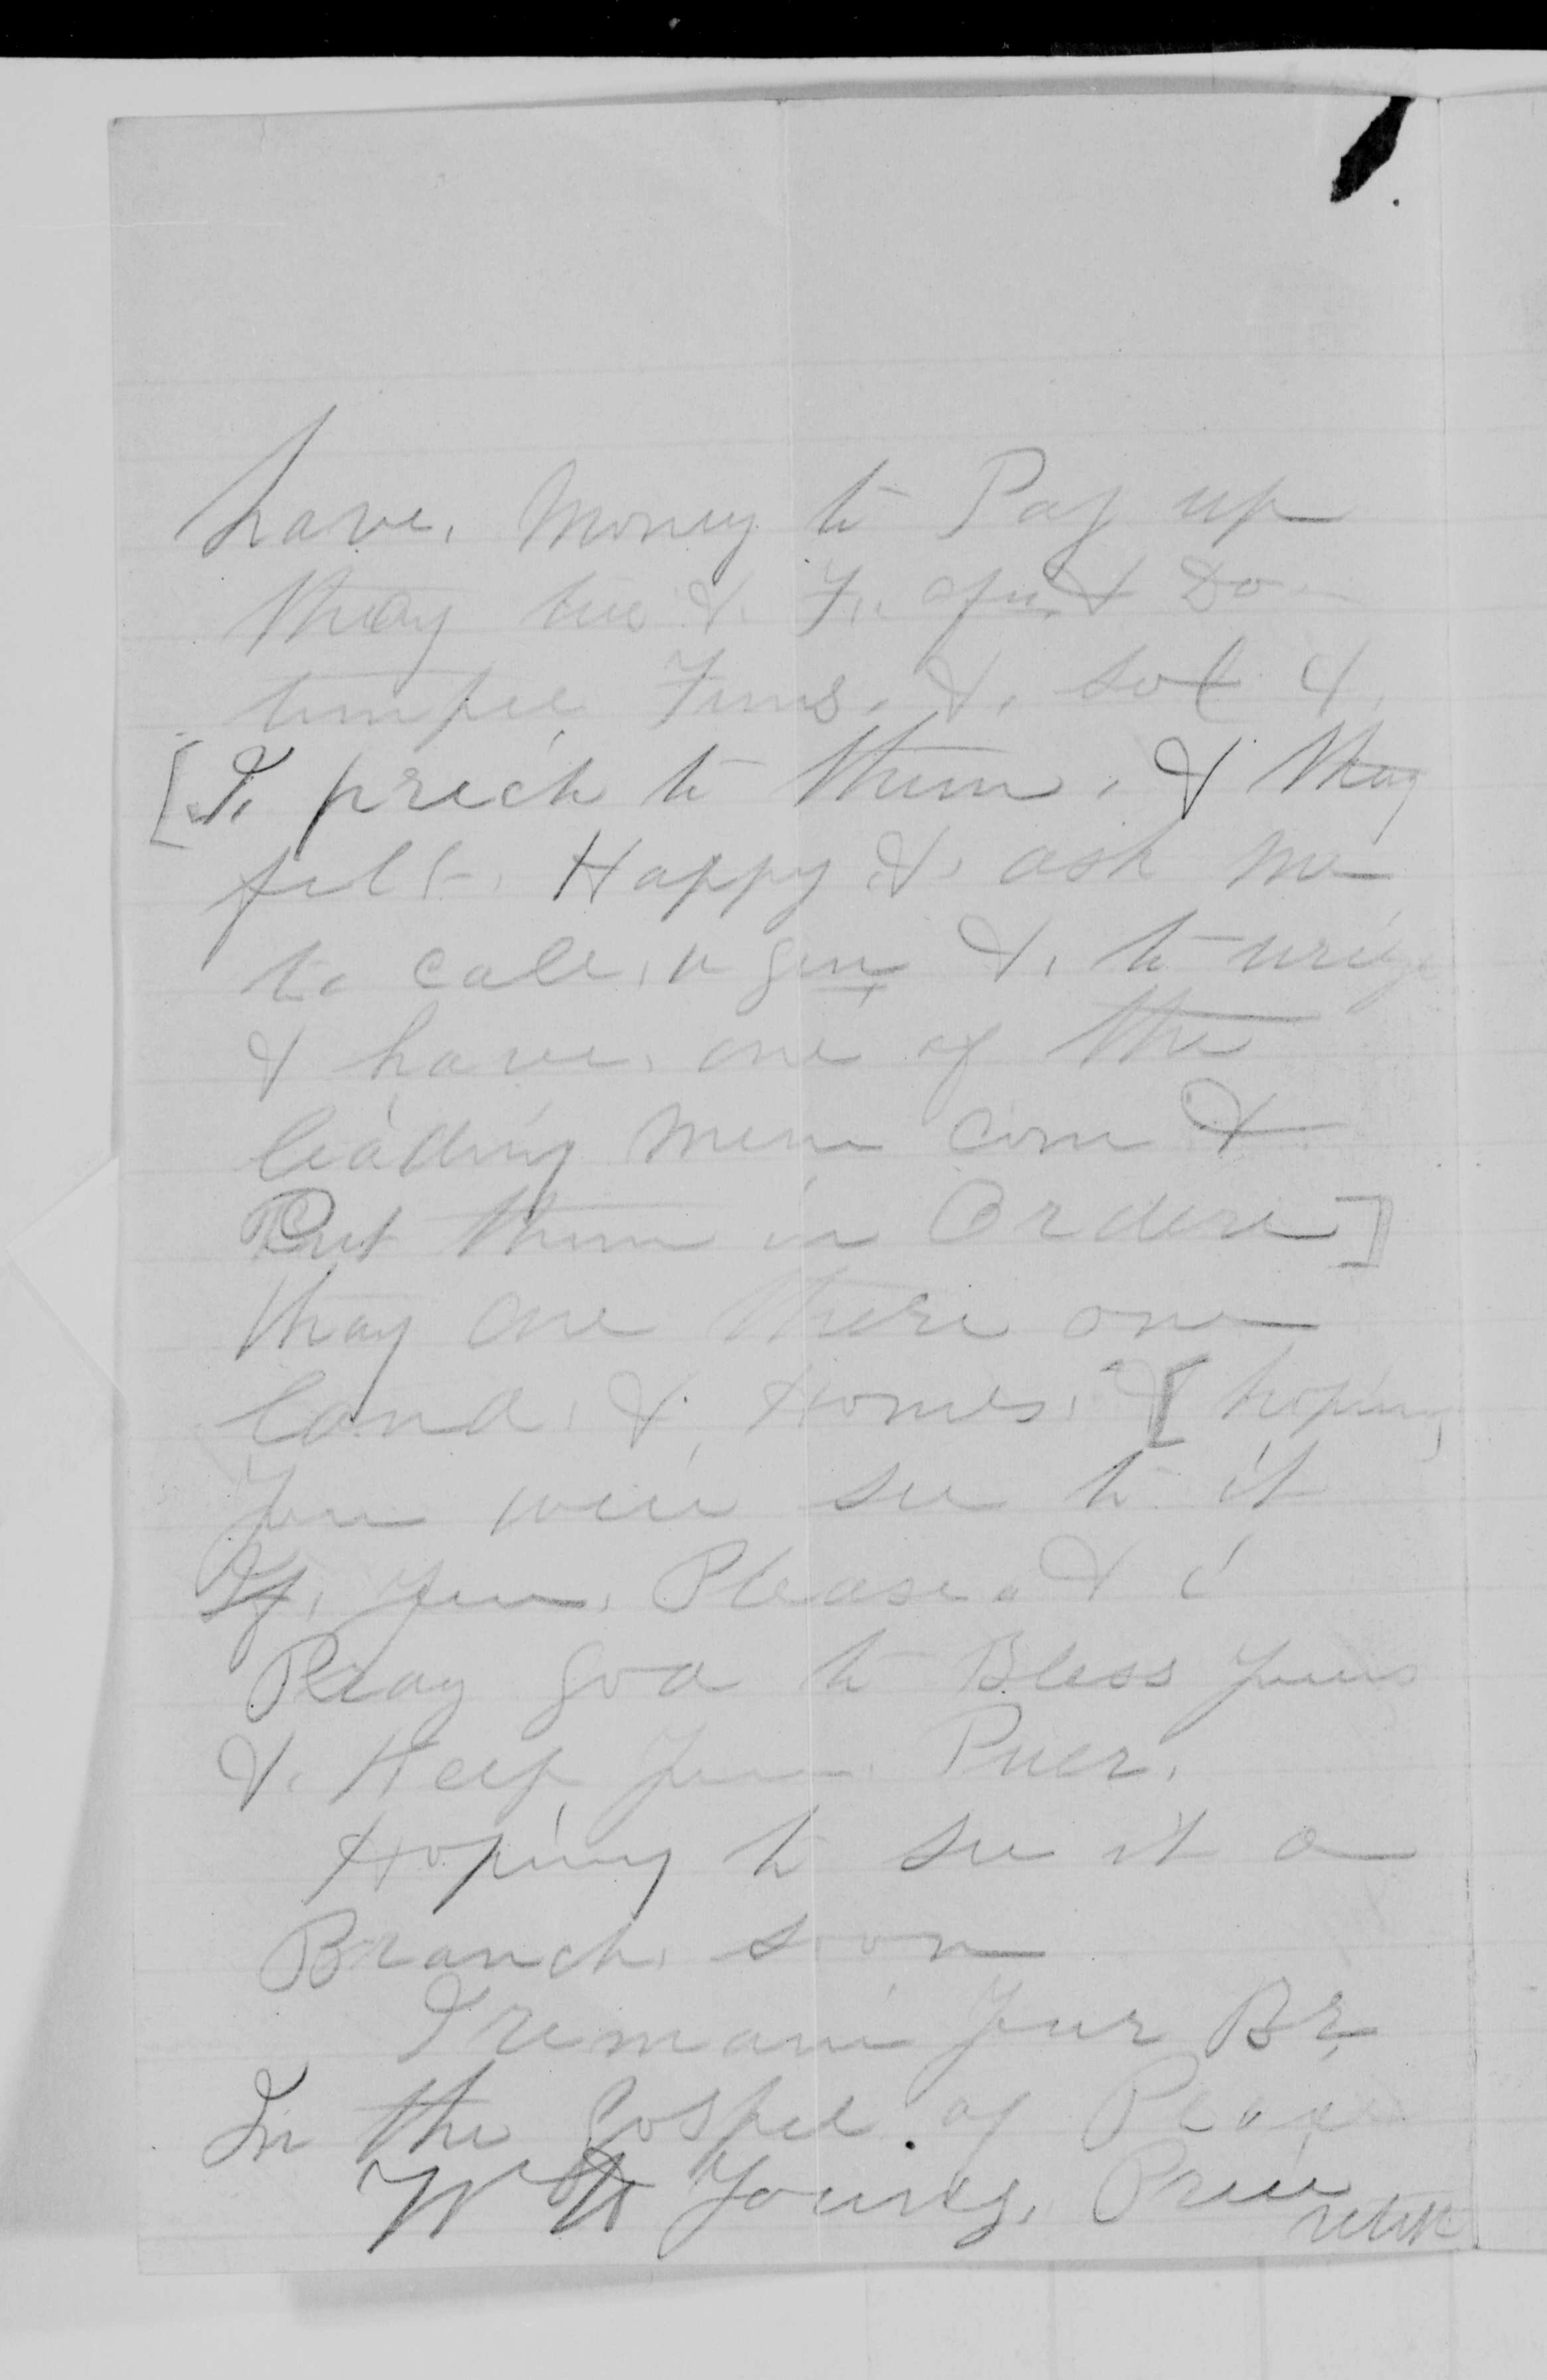 have, Money to Pay up
thay & Do
& sot &.
[I, prech to them, & thay
felt, Happy &, ask me
to call, a gen &, to
& have, one of the
leading men com &
Put them in Ordere]
thay are there one
land, &, Homes, & [hoping
you will see to it
If, you, Please, & i
Pray god to Bless you
&. Help you
Hoping to see it a
Branch, soon
I remain your Br,
In the Gospel of Peace
Young,